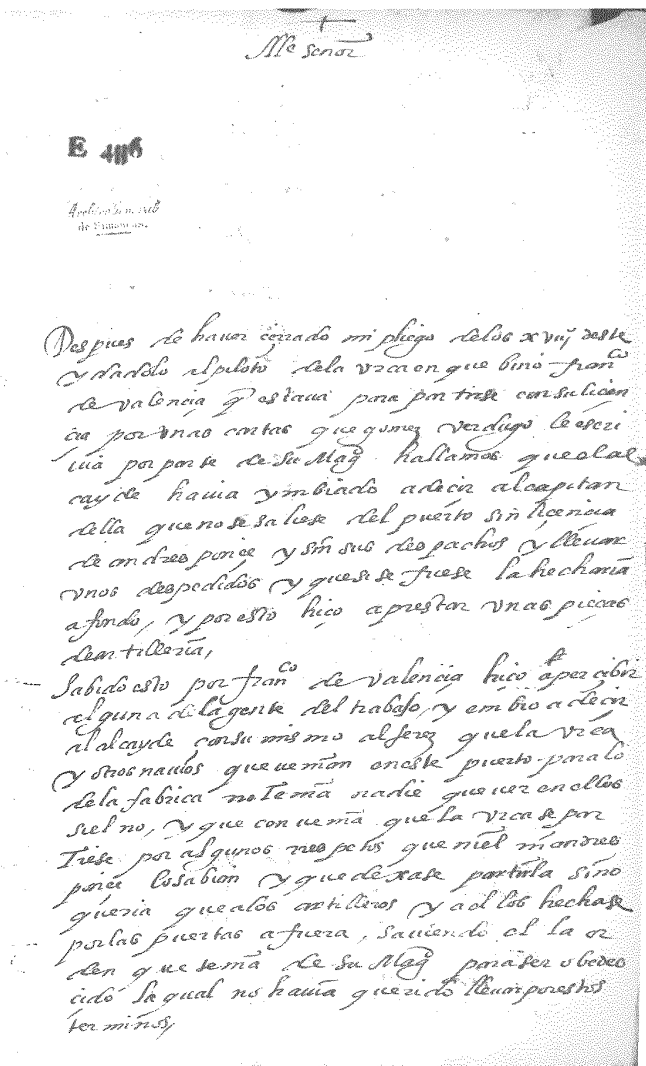 Mẽ senor
E 486
Archivo Gen. ral
de Simancas.
Despues de haver çerrado mi pliego delos xviij deste
y dadolo al piloto dela vrca en que bino franco
de valencia q̃ estaua para partirse con su licen
cia por vnas cartas que gomez verdugo le escri
uia por parte de su Magd hallamos que el al
cayde hauia ymbiado a decir al capitan
della que no se saliese del puerto sin licencia
de andres ponçe y sin sus despachos y lleuar
vnos despedidos y que si se fuese la hecharia
a fondo, y por esto hiço aprestar vnas pieças
de artilleria,
Sabido esto por franco de valencia hiço apercibir
alguna de la gente del trabajo, y embio a decir
al alcayde con su mismo alferez que la vrca
y otros nauios que uenian en este puerto para lo
de la fabrica no tenia nadie que ver en ellos
si el no, y que conuenia que la vrca se par
tiese por algunos respetos que ni el ni andres
ponçe lo sabian y que dexase partirla sino
queria que a los artilleros y a el los hechase
por las puertas a fuera, sauiendo el la or
den que tenia de su Magd para ser obedeci
cido la qual no hauia querido lleuar por estos
terminos,